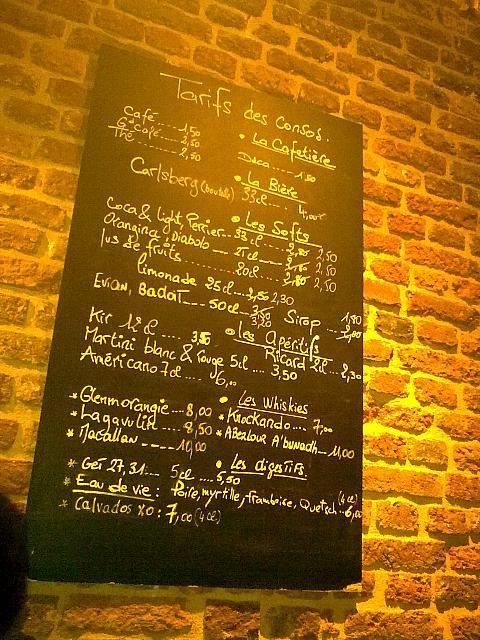 Tarifs des Consos.
Café ..... 1,50
• La Cafetière
Gd Café .... 2,50
Thé ...... 2,50
Déca ..... 1,50
• La Bière
Carlsberg (bouteille) 33cl .... 4,00€
• Les Softs
Coca & light, Perrier .. 33cl ... 2,50
Orangina, Diabolo .. 25cl ... 2,50
Jus de fruits ..... 20cl ... 2,50
limonade 25cl .... 2,30
EVIAN, BADOIT ... 50cl ... 3,20
Sirop ... 1,80
• Les Apéritifs
Kir 12cl ..... 3,50
Ricard 2cl ... 2,30
Martini blanc & rouge 5cl ... 3,50
Américano 7cl ... 6,00
• Les Whiskies
* Glenmorangie ... 8,00
* Knockando .... 7,00
* Lagavulin .... 8,50
* Aberlour A'bunadh ... 11,00
* Macallan ..... 10,00
• Les digestifs.
* GET 27,31 .... 5cl .... 5,50
* Eau de vie : Poire, myrtille, framboise, Quetsch (4cl) .. 6,00
* Calvados XO : 7,00 (4cl)